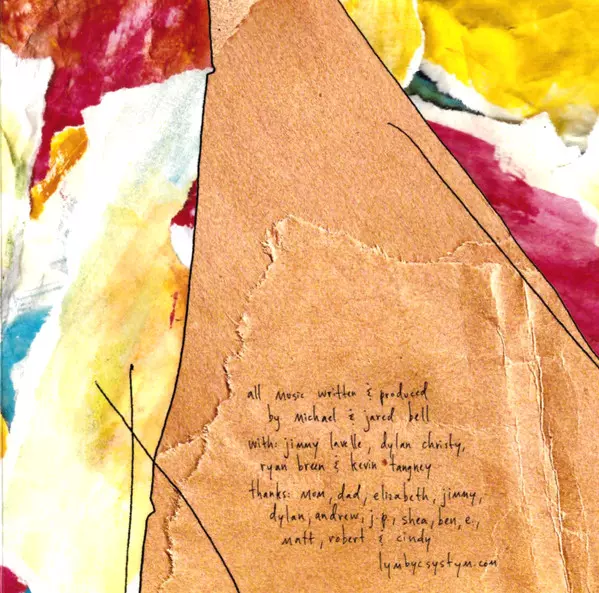 all music written & produced
by michael & jared bell
with: jimmy lavelle, dylan christy,
ryan breen & kevin tangney
thanks: mom, dad, elizabeth, jimmy,
dylan, andrew, j.p., shea, ben, e.,
matt, robert & cindy
lymbycsystym.com